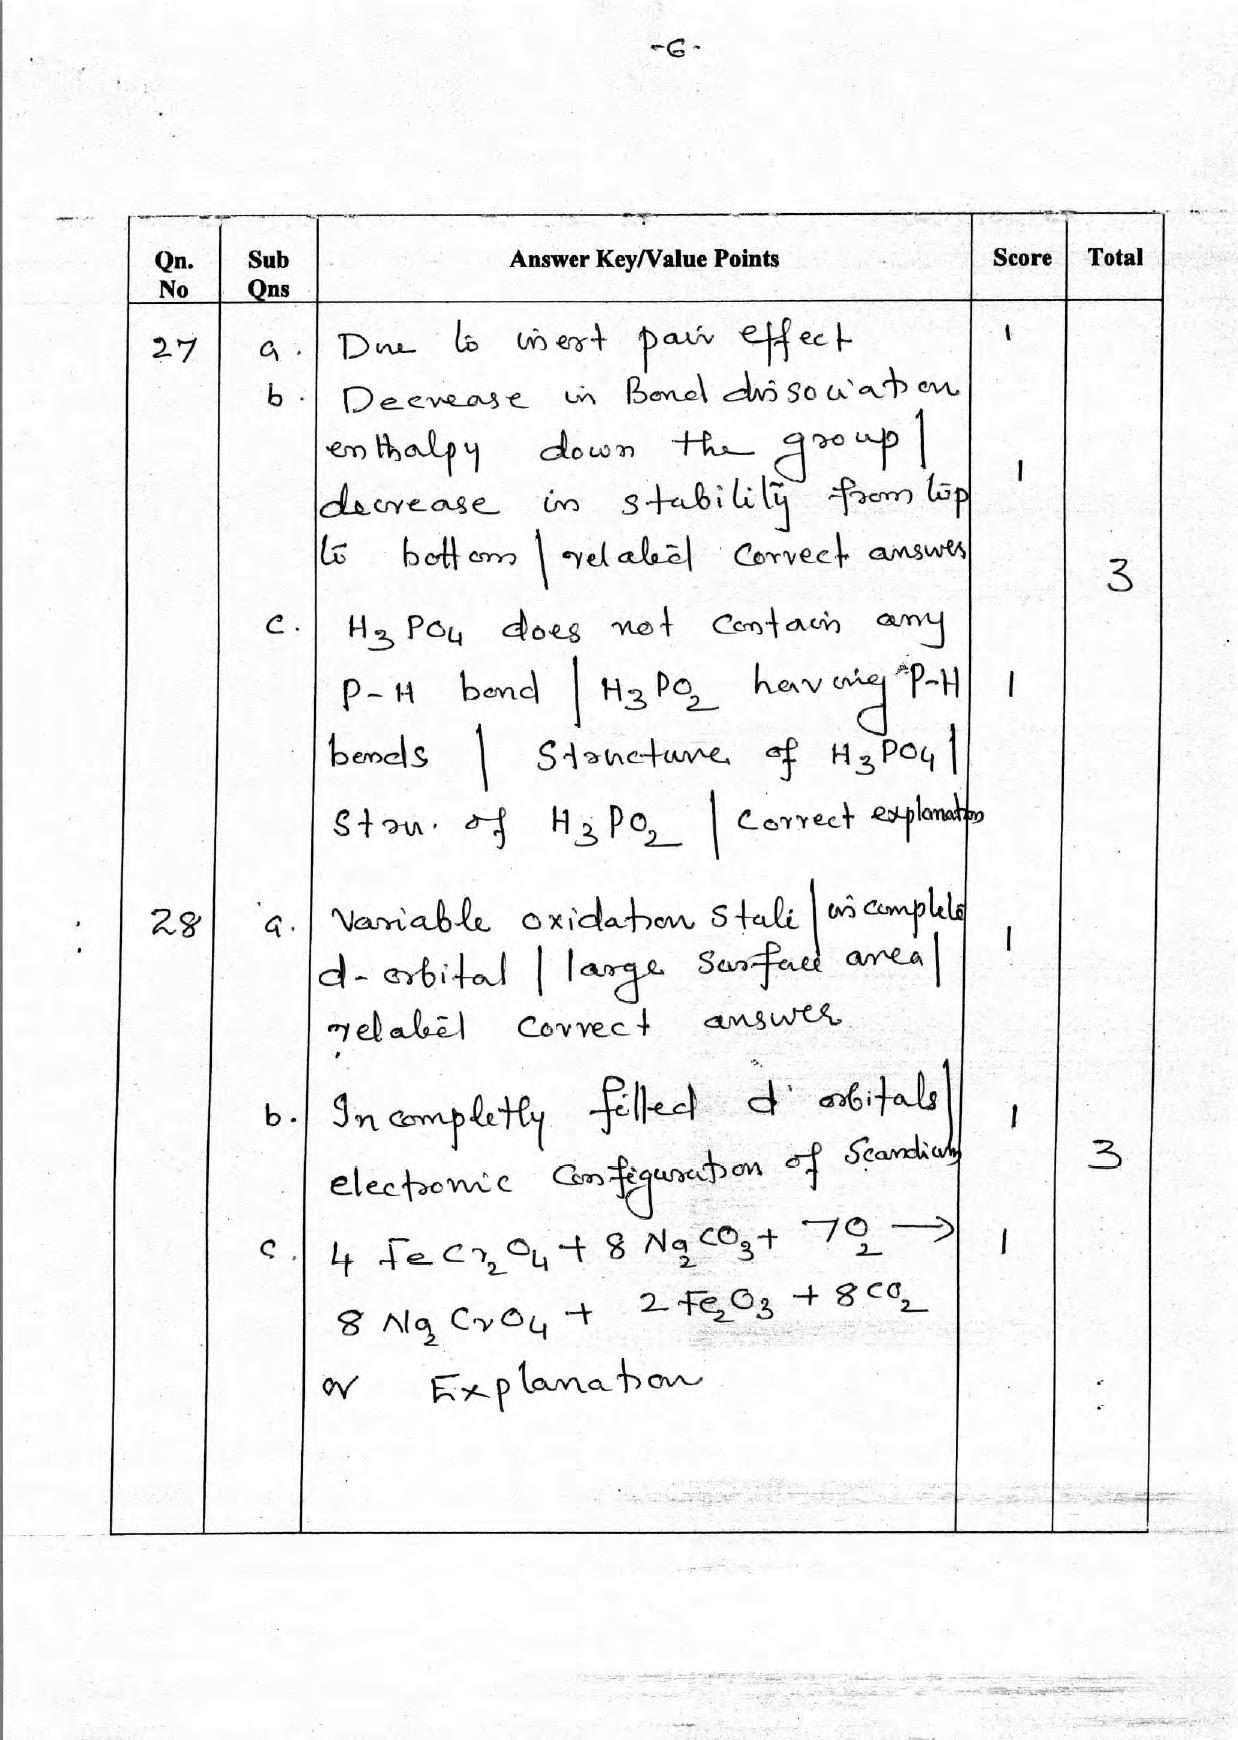 -6-
Qn. No Sub Qns Answer Key/Value Points Score Total
27 a. Due to inert pair effect 1
b. Decrease in Bond dissociation
enthalpy down the group |
decrease in stability from top 1
to bottom | related correct answer
3
c. H₃PO₄ does not contain any
P-H bond | H₃PO₂ having P-H 1
bonds | Structure of H₃PO₄ |
Stru. of H₃PO₂ | Correct explanation
28 a. Variable oxidation state | incomplete
d-orbital | large surface area | 1
related correct answer
b. Incompletly filled d orbitals | 1
electronic Configuration of Scandium 3
c. 4 FeCr₂O₄ + 8 Na₂CO₃ + 7O₂ → 1
8 Na₂CrO₄ + 2 Fe₂O₃ + 8CO₂
or Explanation